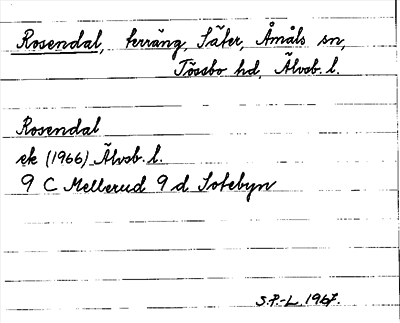 Rosendal, terräng, Säter, Åmåls sn,
Tössbo hd, Älvsb. l.
Rosendal
ek (1966) Älvsb. l.
9 C Mellerud 9 d Sotebyn
S.P.-L. 1967.